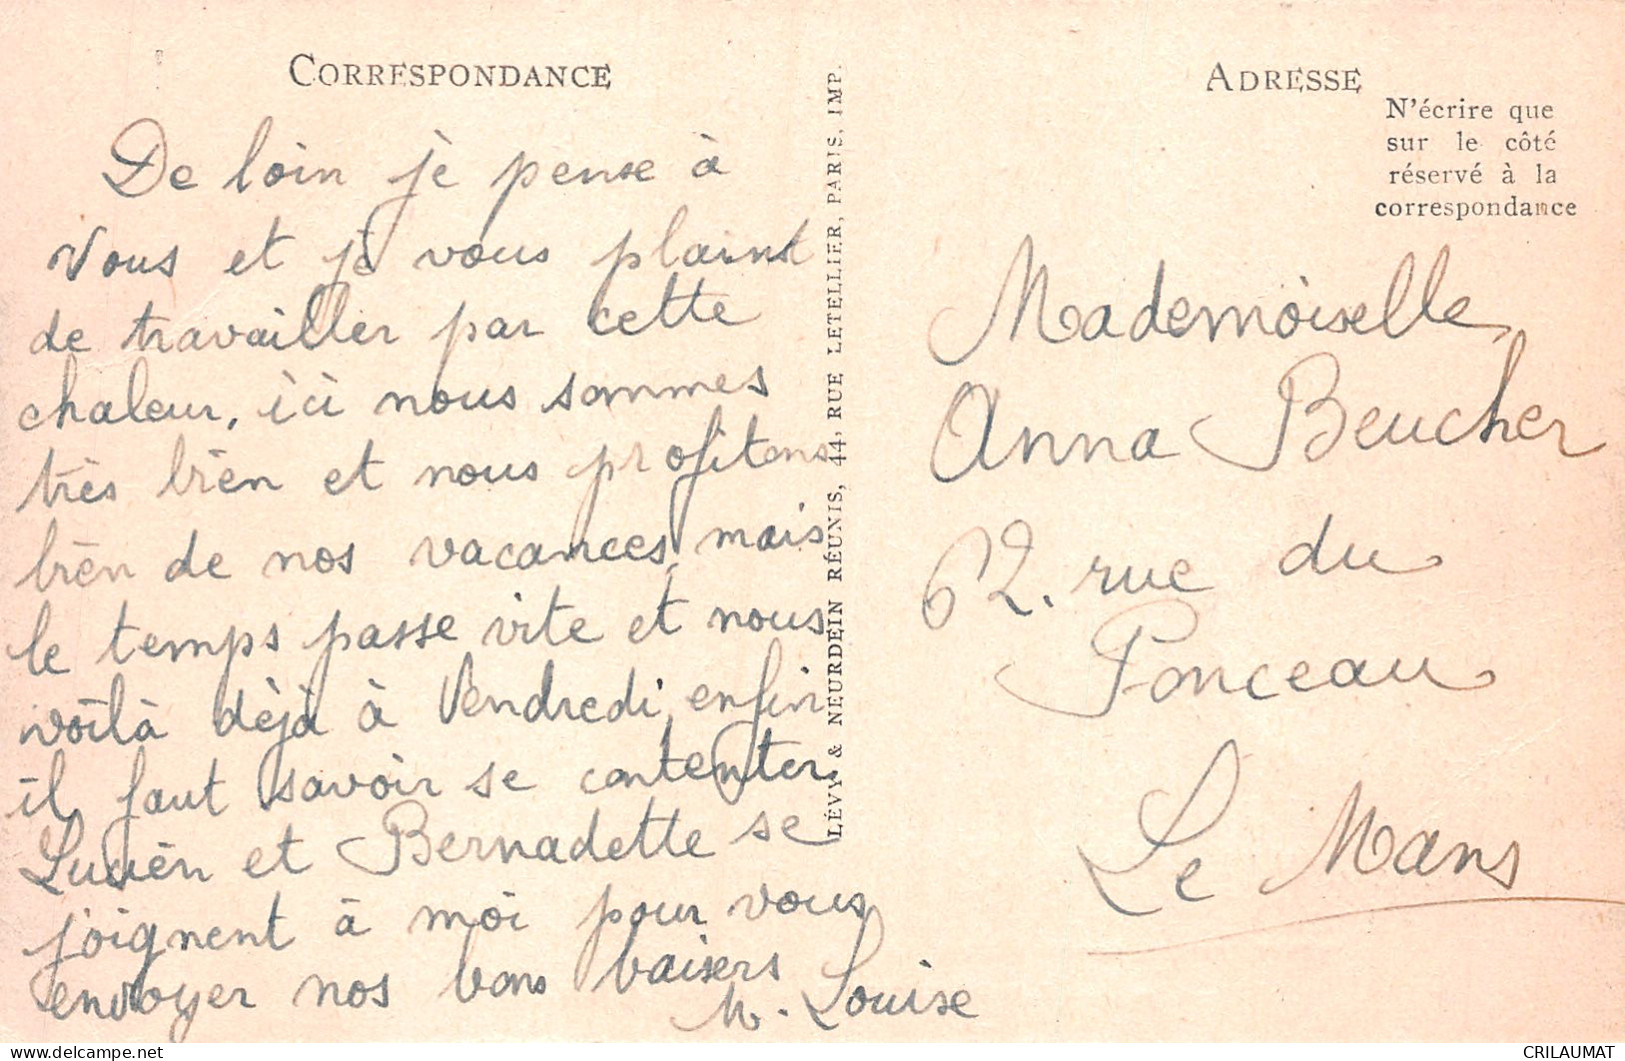 CORRESPONDANCE
De loin je pense à
vous et je vous plaint
de travailler par cette
chaleur, ici nous sommes
très bien et nous profitons
bien de nos vacances, mais
le temps passe vite et nous
voilà déjà à Vendredi, enfin
il faut savoir se contenter.
Lucien et Bernadette se
joignent à moi pour vous
envoyer nos bons baisers
M. Louise
LÉVY & NEURDEIN RÉUNIS, 44, RUE LETELLIER, PARIS, IMP.
ADRESSE
N'écrire que
sur le côté
réservé à la
correspondance
Mademoiselle
Anna Beucher
62. rue du
Ponceau
Le Mans
CRILAUMAT
https://www.delcampe.net